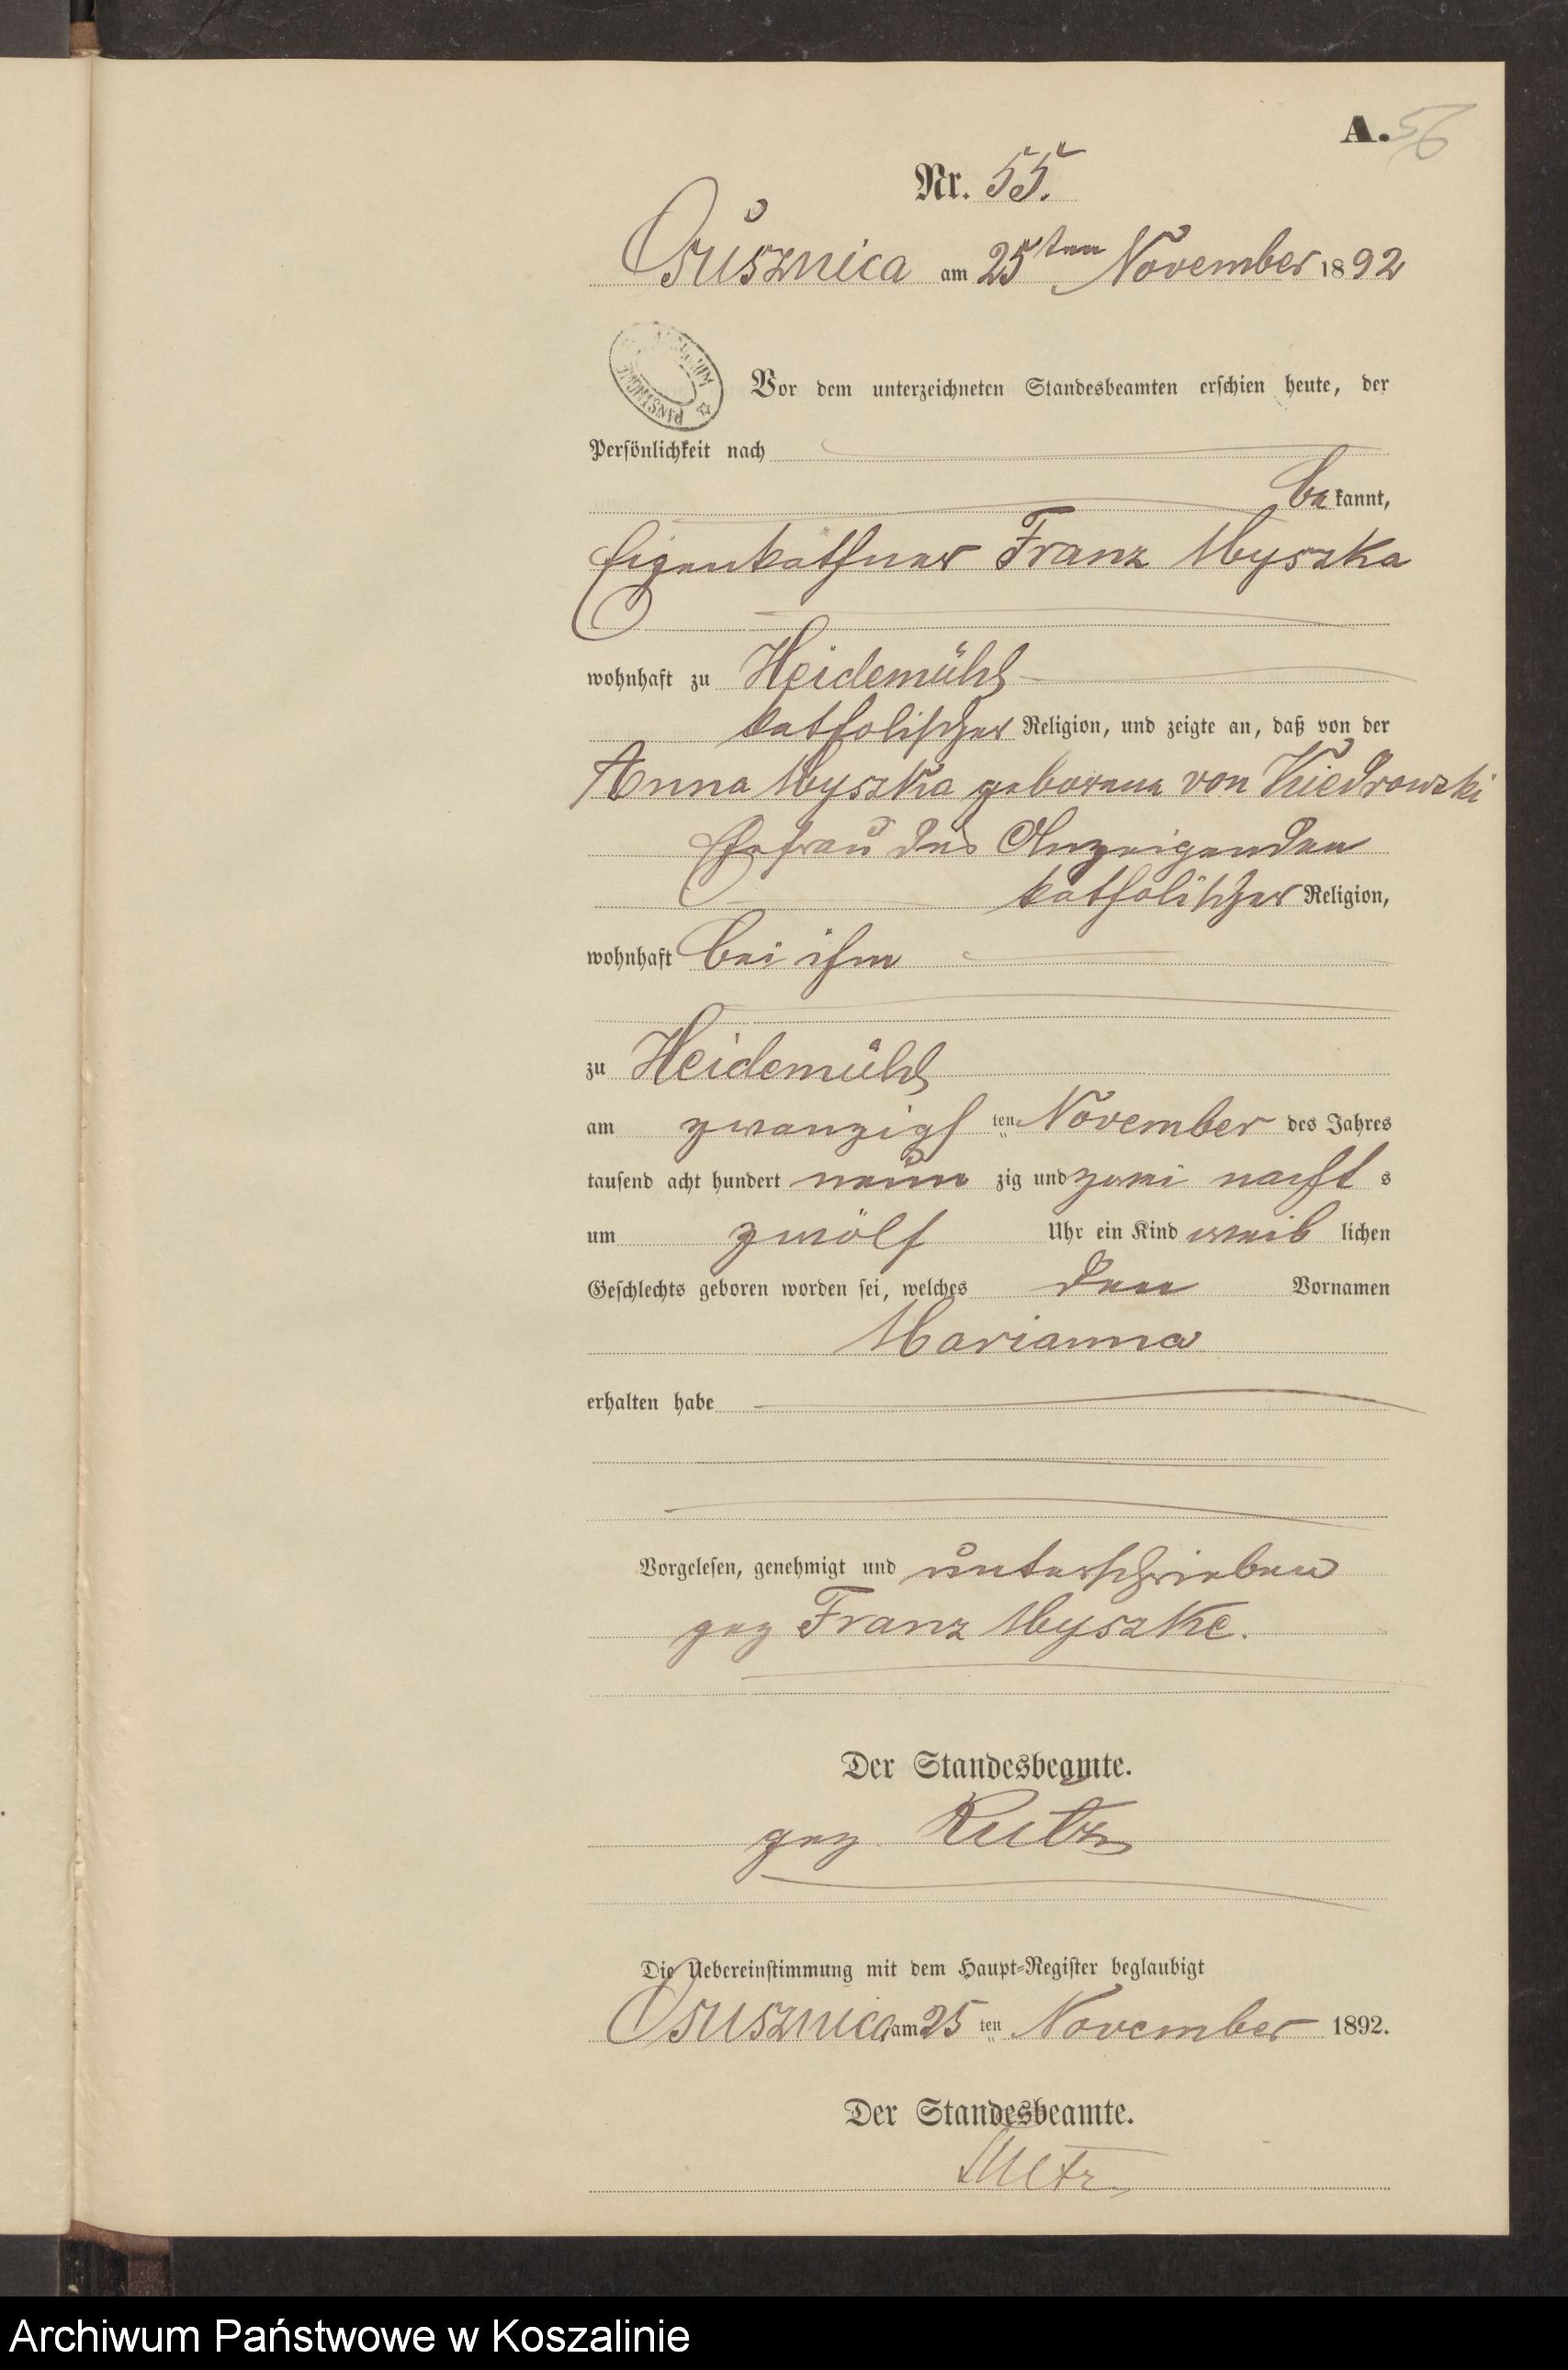 A. 56
Nr. 55.
Osusznica am 25ten November 1892
PAŃSTWOWE
Vor dem unterzeichneten Standesbeamten erschien heute, der
Persönlichkeit nach
bekannt,
Eigenkäthner Franz Myszka
wohnhaft zu Heidemühl
katholischer Religion, und zeigte an, daß von der
Anna Myszka geborene von Kiedrowski
Ehefrau des Anzeigenden
katholischer Religion,
wohnhaft bei ihm
zu Heidemühl
am zwanzigsten November des Jahres
tausend acht hundert neunzig und zwei nachts
um zwölf Uhr ein Kind weiblichen
Geschlechts geboren worden sei, welches den Vornamen
Marianna
erhalten habe
Vorgelesen, genehmigt und unterschrieben
gez Franz Myszke.
Der Standesbeamte.
gez.
Die Uebereinstimmung mit dem Haupt-Register beglaubigt
Osusznica am 25ten November 1892.
Der Standesbeamte.
Archiwum Państwowe w Koszalinie